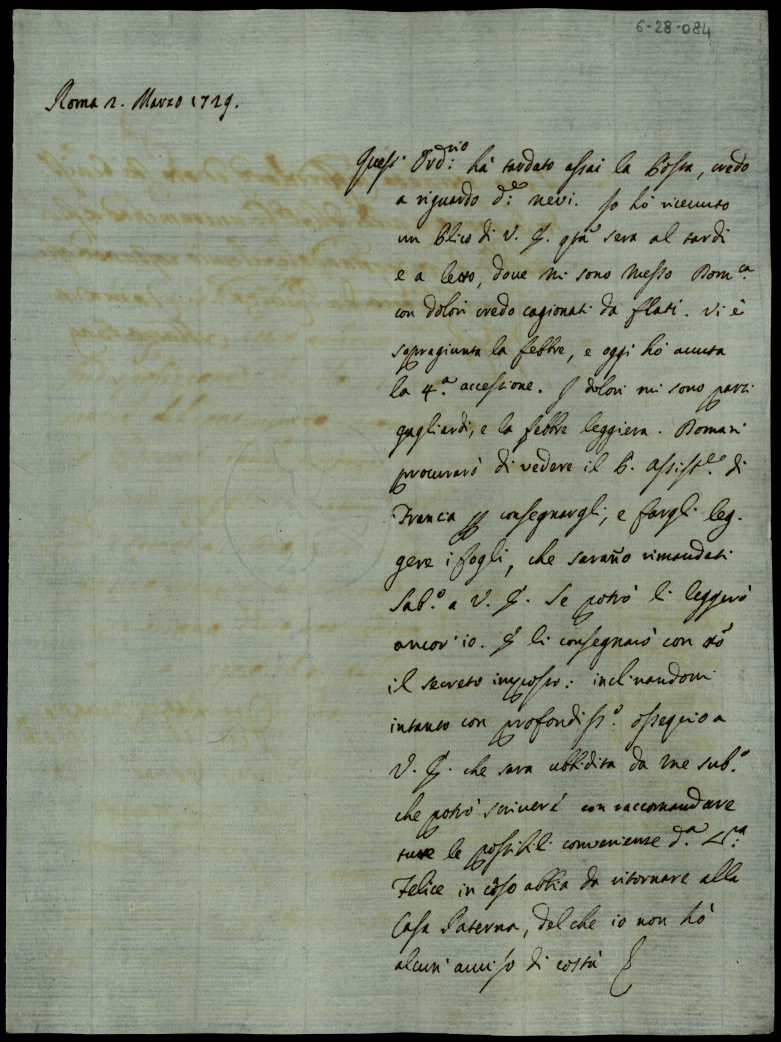 6-28-084
Roma 2. Marzo 1729.
Quest' Ord:rio hà tardato assai la Posta, credo
a riguardo d:e nevi. Io hò ricevuto
un Plico di V. S. qta sera al tardi
e a letto, dove mi sono messo Domca
con dolori credo cagionati da flati. Vi è
sopragiunta la febbre, e oggi hò avuta
la 4.a accessione. I dolori mi sono parsi
gagliardi, e la febbre leggiera. Domani
procurarò di vedere il P. Assiste di
Francia per consegnargli, e fargli leg-
gere i fogli, che sarano rimandati
Sab.o a V. S. Se potrò li leggerò
ancor' io. E li consegnarò con tto
il secreto imposto: inclinandomi
intanto con profondiss.o ossequio a
V. S. che sarà ubbidita da me sub.o
che potrò scrivere con raccomandare
tutte le possibili convenienze d.a Sra
Felice in caso abbia da ritornare alla
Casa Paterna, del che io non hò
alcun' avviso di costà